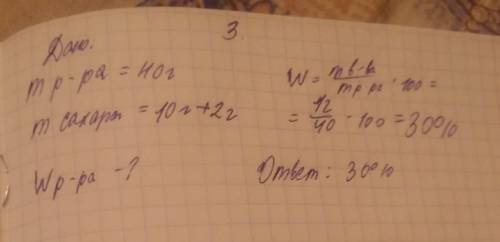 3
Дано.
m р-ра = 40г
m сахара = 10г+2г
Wр-ра -?
W = m в-ва / m р-ра · 100 =
= 12/40 · 100 = 30%
Ответ: 30%